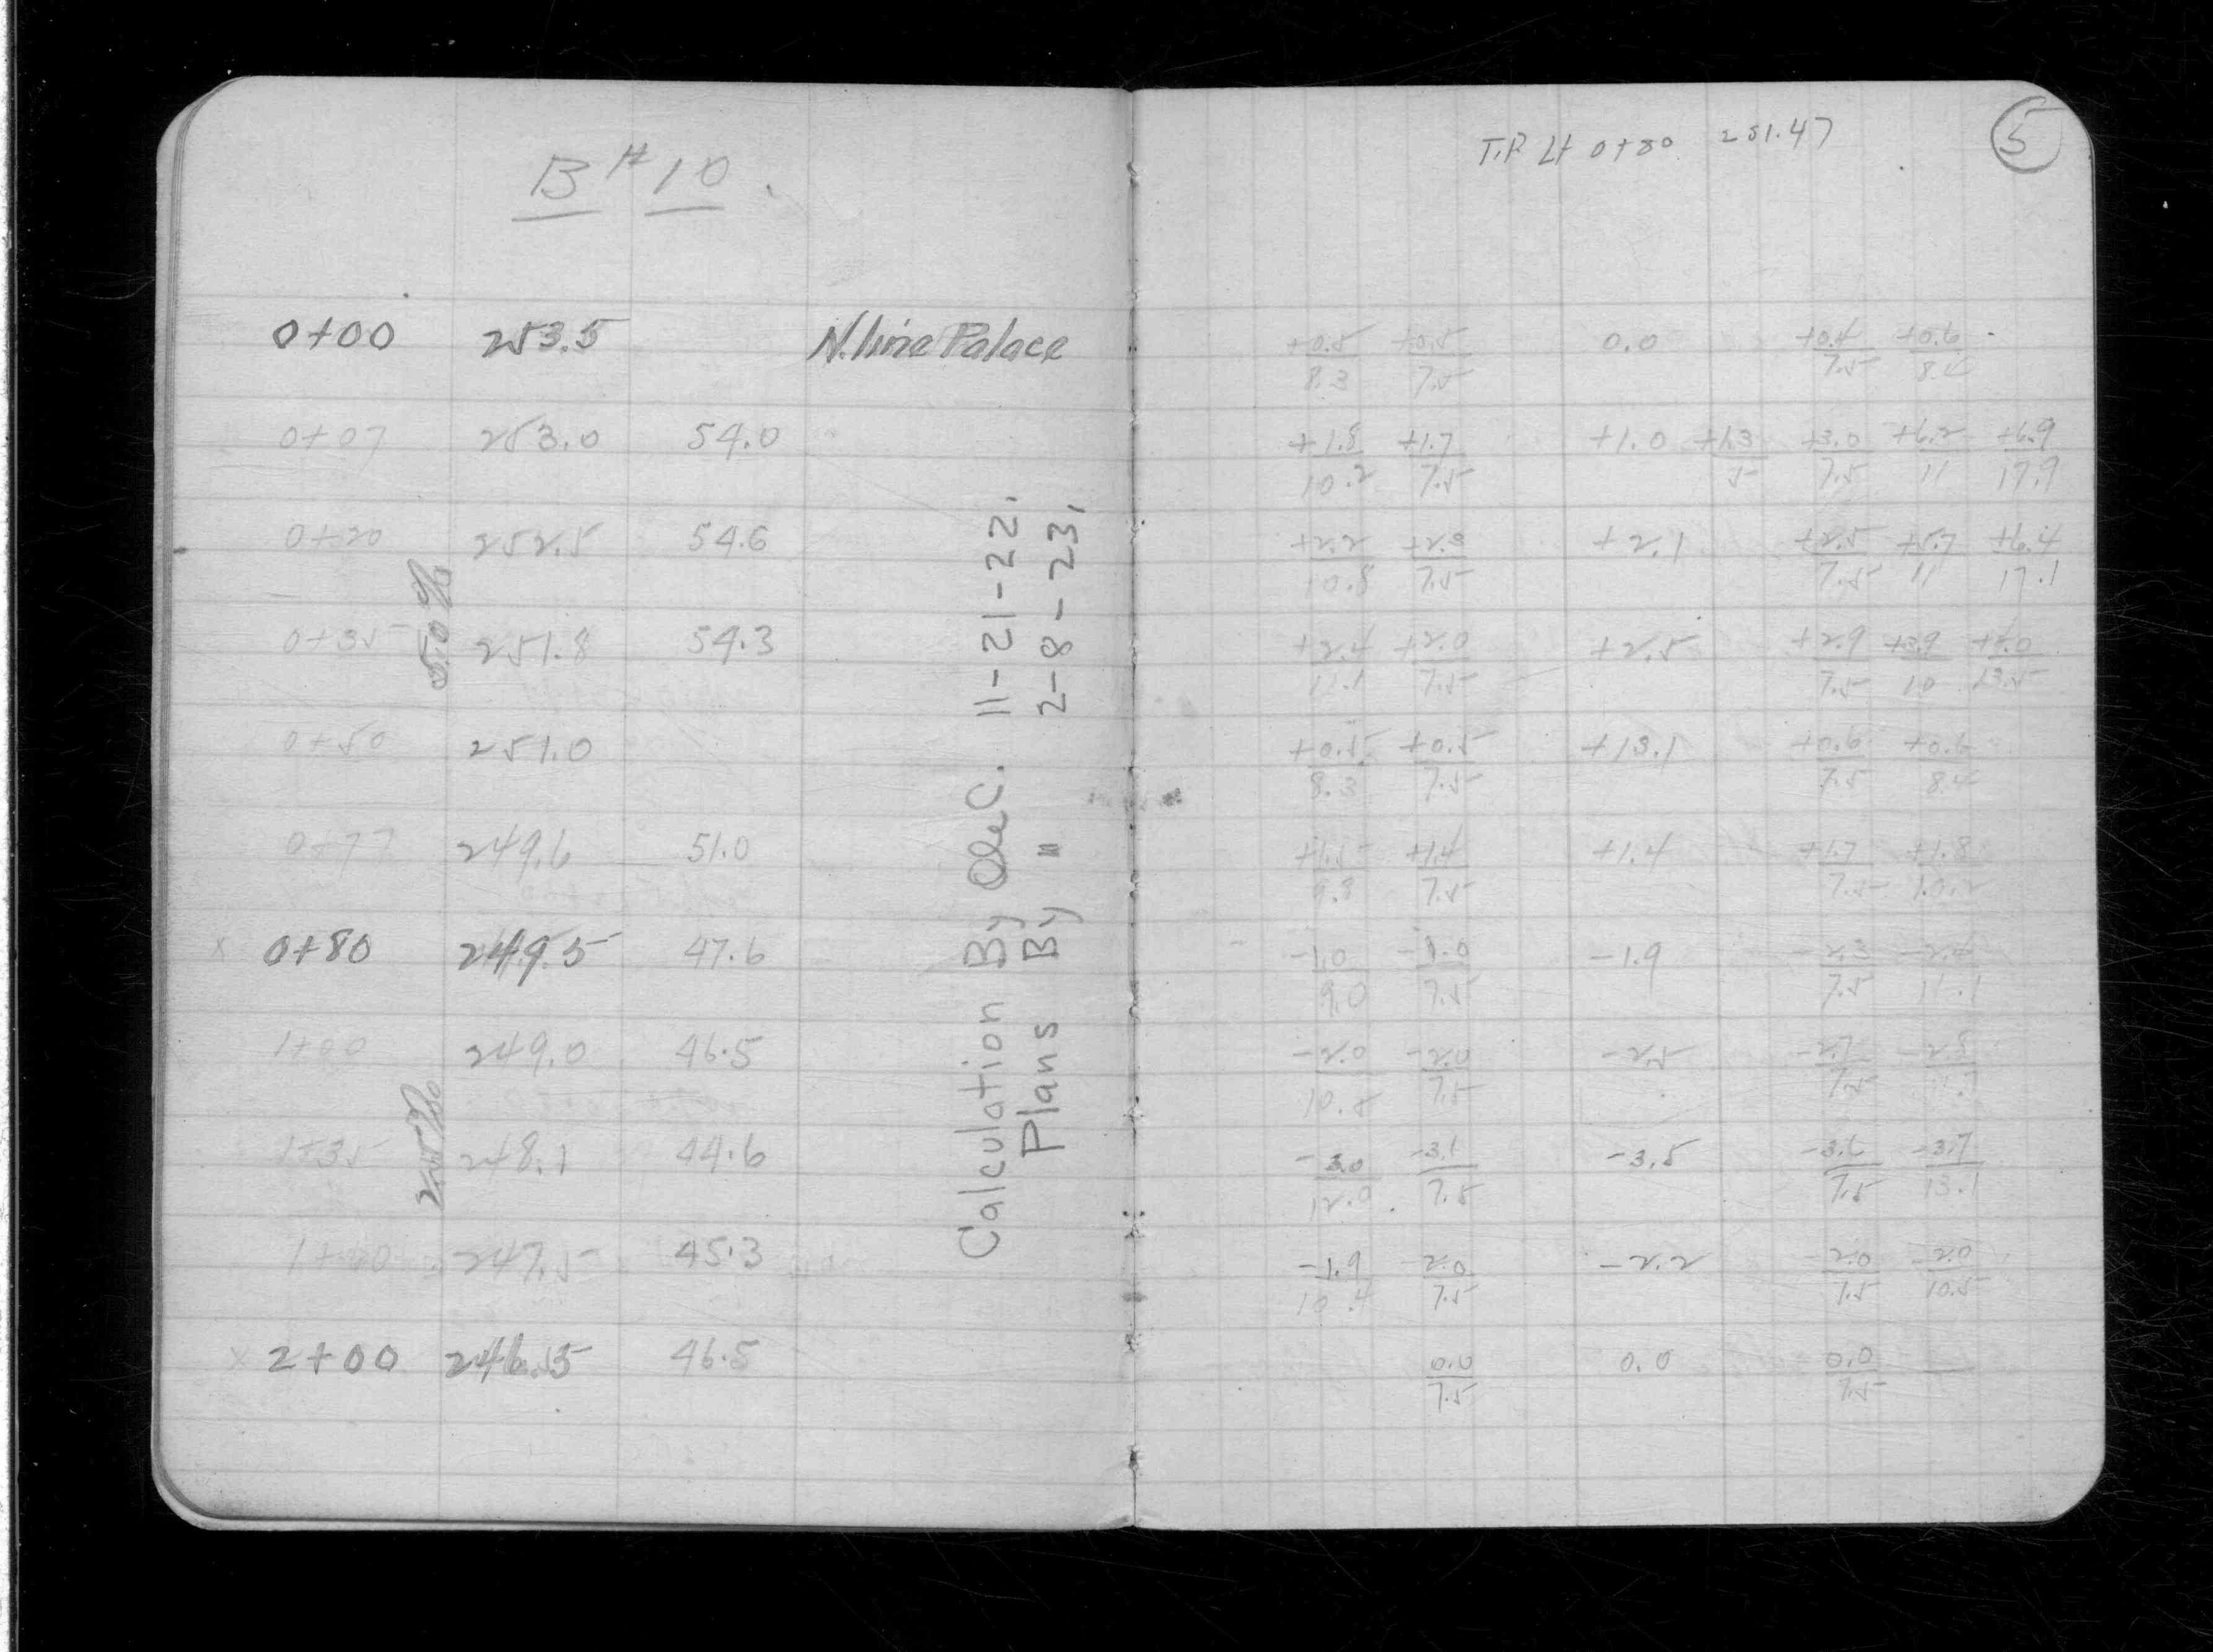 B # 10.
0+00 253.5 N. line Palace
0+07 253.0 54.0
0+20 252.5 54.6
5.0%
0+35 251.8 54.3
0+50 251.0
0+77 249.6 51.0
x 0+80 249.5 47.6
1+00 249.0 46.5
2.5%
1+35 248.1 44.6
1+60 247.5 45.3
x 2+00 246.5 46.5
Calculation By 11-21-22,
Plans By " 2-8-23,
T.P Lt 0+80 251.47
5
+0.5 +0.5 0.0 +0.4 +0.6
8.3 7.5 7.5
+1.8 +1.7 +1.0 +1.3 +3.0 +6.2 +6.9
10.2 7.5 5 7.5 11 17.9
+2.2 +2.3 +2.1 +2.5 +5.7 +6.4
10.8 7.5 7.5 11 17.1
+2.4 +2.0 +2.5 +2.9 +3.9 +4.0
11.1 7.5 7.5 10 13.5
+0.5 +0.5 +13.1 +0.6 +0.6
8.3 7.5 7.5
+1.4 +1.4 +1.7 +1.8
9.8 7.5 7.5 10.2
-1.0 -1.0 -1.9 -2.3
9.0 7.5 7.5 11.1
-2.0 -2.0 -2.5 -2.7 -2.8
10.8 7.5 7.5
-3.0 -3.1 -3.5 -3.6 -3.7
12.0 7.5 7.5 13.1
-1.9 -2.0 -2.2 -2.0 -2.0
10.4 7.5 7.5 10.5
0.0 0.0 0.0
7.5 7.5